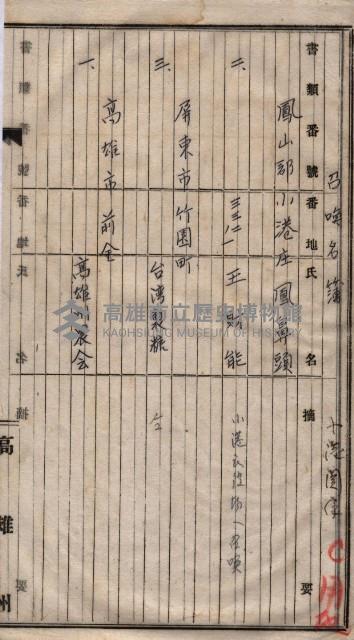 召喚名簿
小港圍IP
書類番號 番地氏名 摘要
鳳山郡小港庄鳳鼻頭
二、 三三二ノ一 王財能 小港庄役場ヘ召喚
屏東市竹園町
三、 台湾東糖 仝
高雄市前金
一、 高雄州農会
書類番號 番地氏名 摘要
高雄州
高雄市立歷史博物館
KAOHSIUNG MUSEUM OF HISTORY